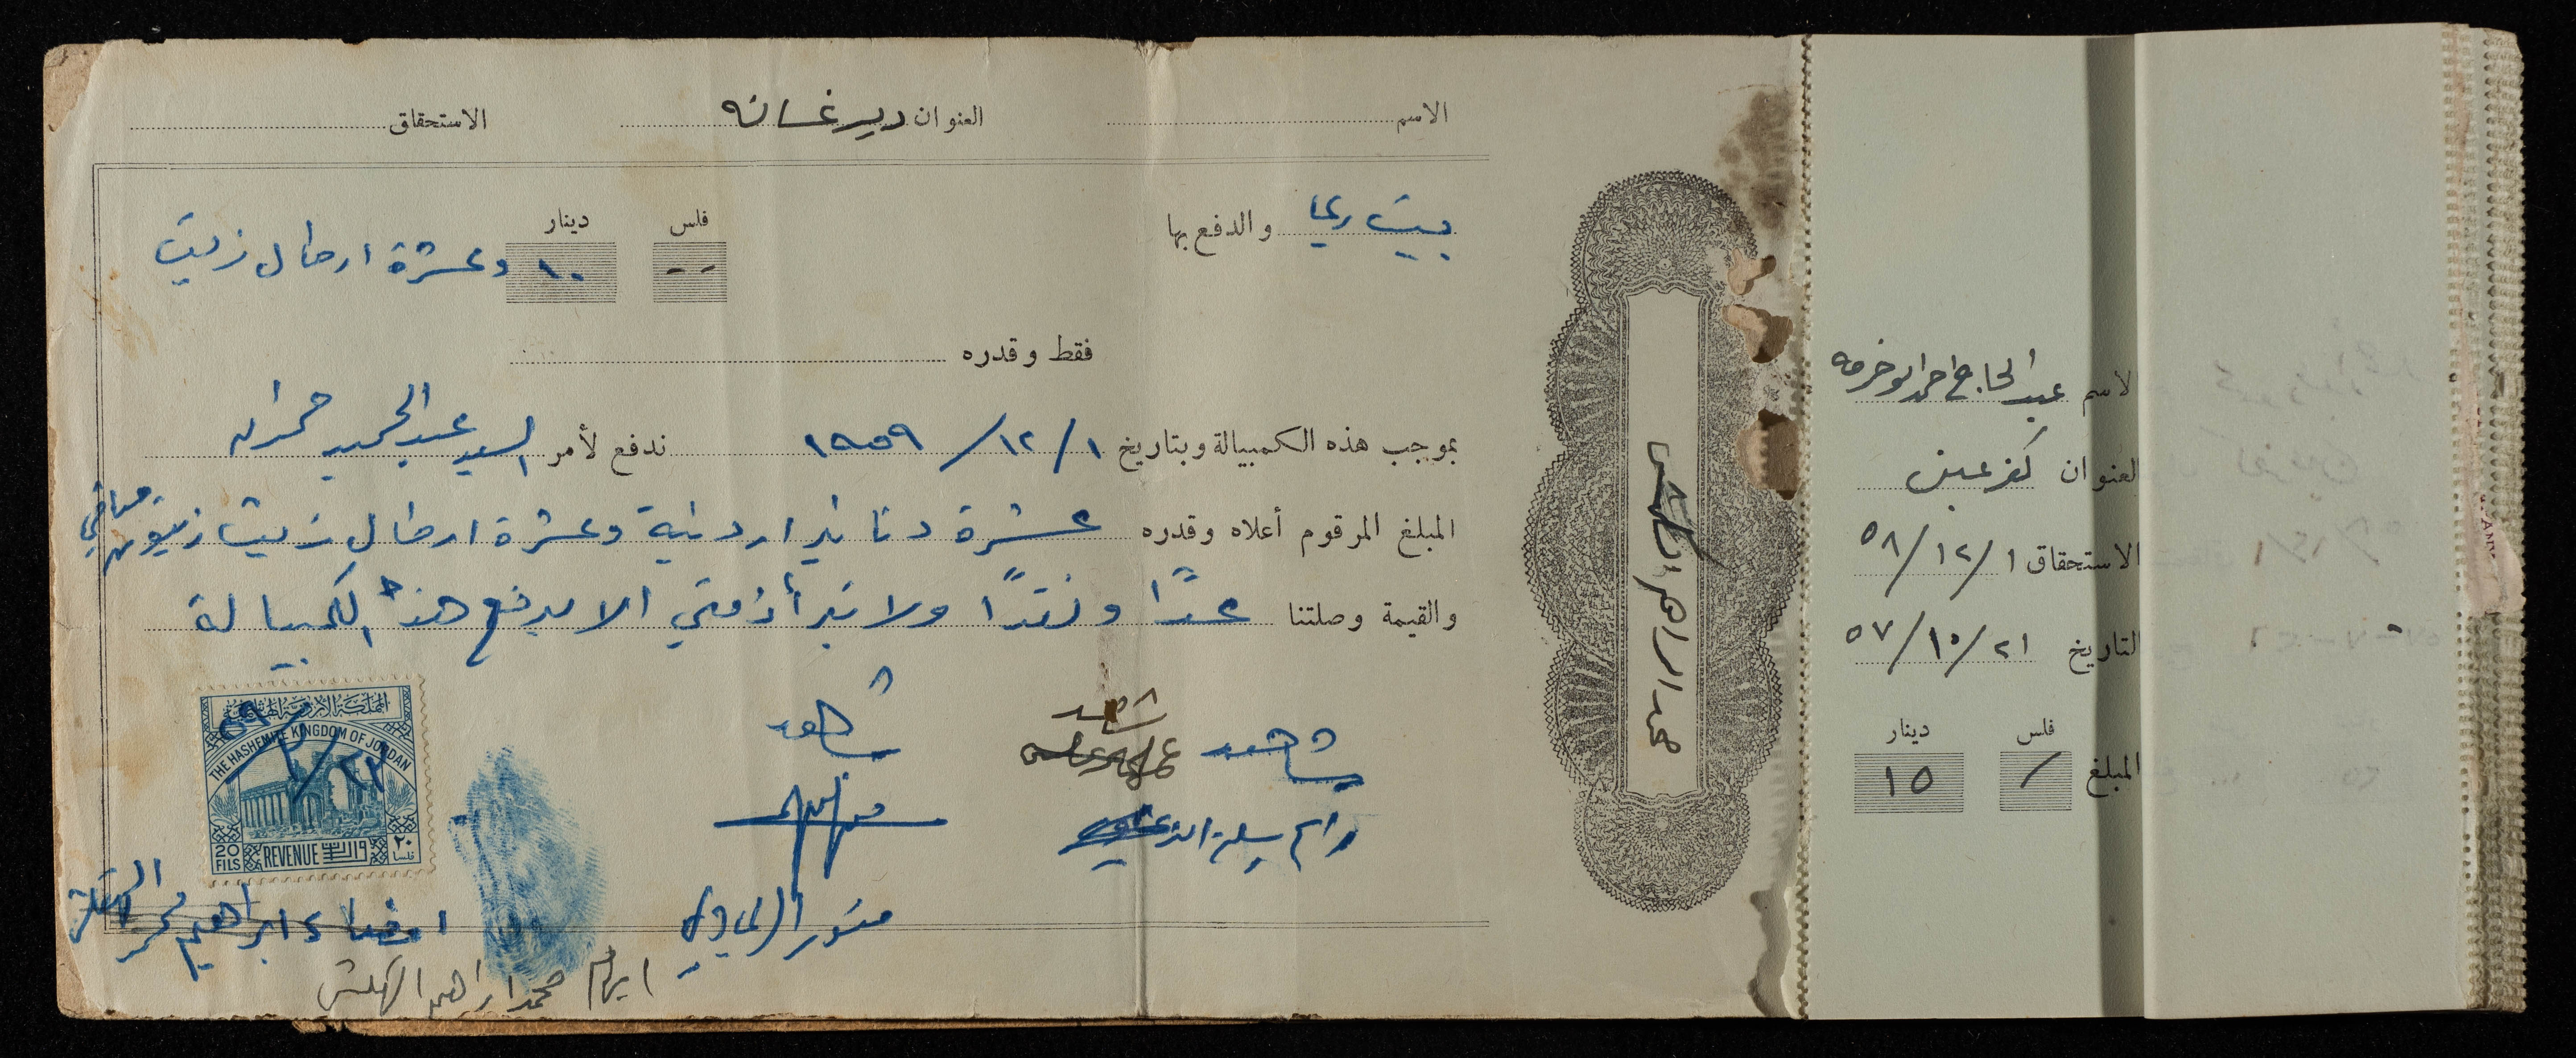 الاسم العنوان دير غسانه الاستحقاق
بيت ريما والدفع بها
فلس دينار
-- ١٠ وعشرة ارطال زيت
فقط وقدره
بموجب هذه الكمبيالة وبتاريخ ١/١٢/١٩٥٩ ندفع لأمر السيد عبد الحميد حمدان
المبلغ المرقوم أعلاه وقدره عشرة دنانير اردنية وعشرة ارطال زيت زيتون صافي
والقيمة وصلتنا عدًا ونقدًا ولا تبرأ ذمتي الا بدفع هذه الكمبيالة
شاهد
شاهد
شاهد
المملكة الأردنية الهاشمية
THE HASHEMITE KINGDOM OF JORDAN
20 FILS
REVENUE
واردات
٢٠ فلسا
امضاء ابراهيم محمد
محمد ابراهيم الهلش
محمد ابراهيم
لاسم عبد الحاج احمد ابو خرمه
لعنوان كفر عين
الاستحقاق ١/١٢/٥٨
لتاريخ ٢١/١٠/٥٧
فلس دينار
المبلغ / ١٥